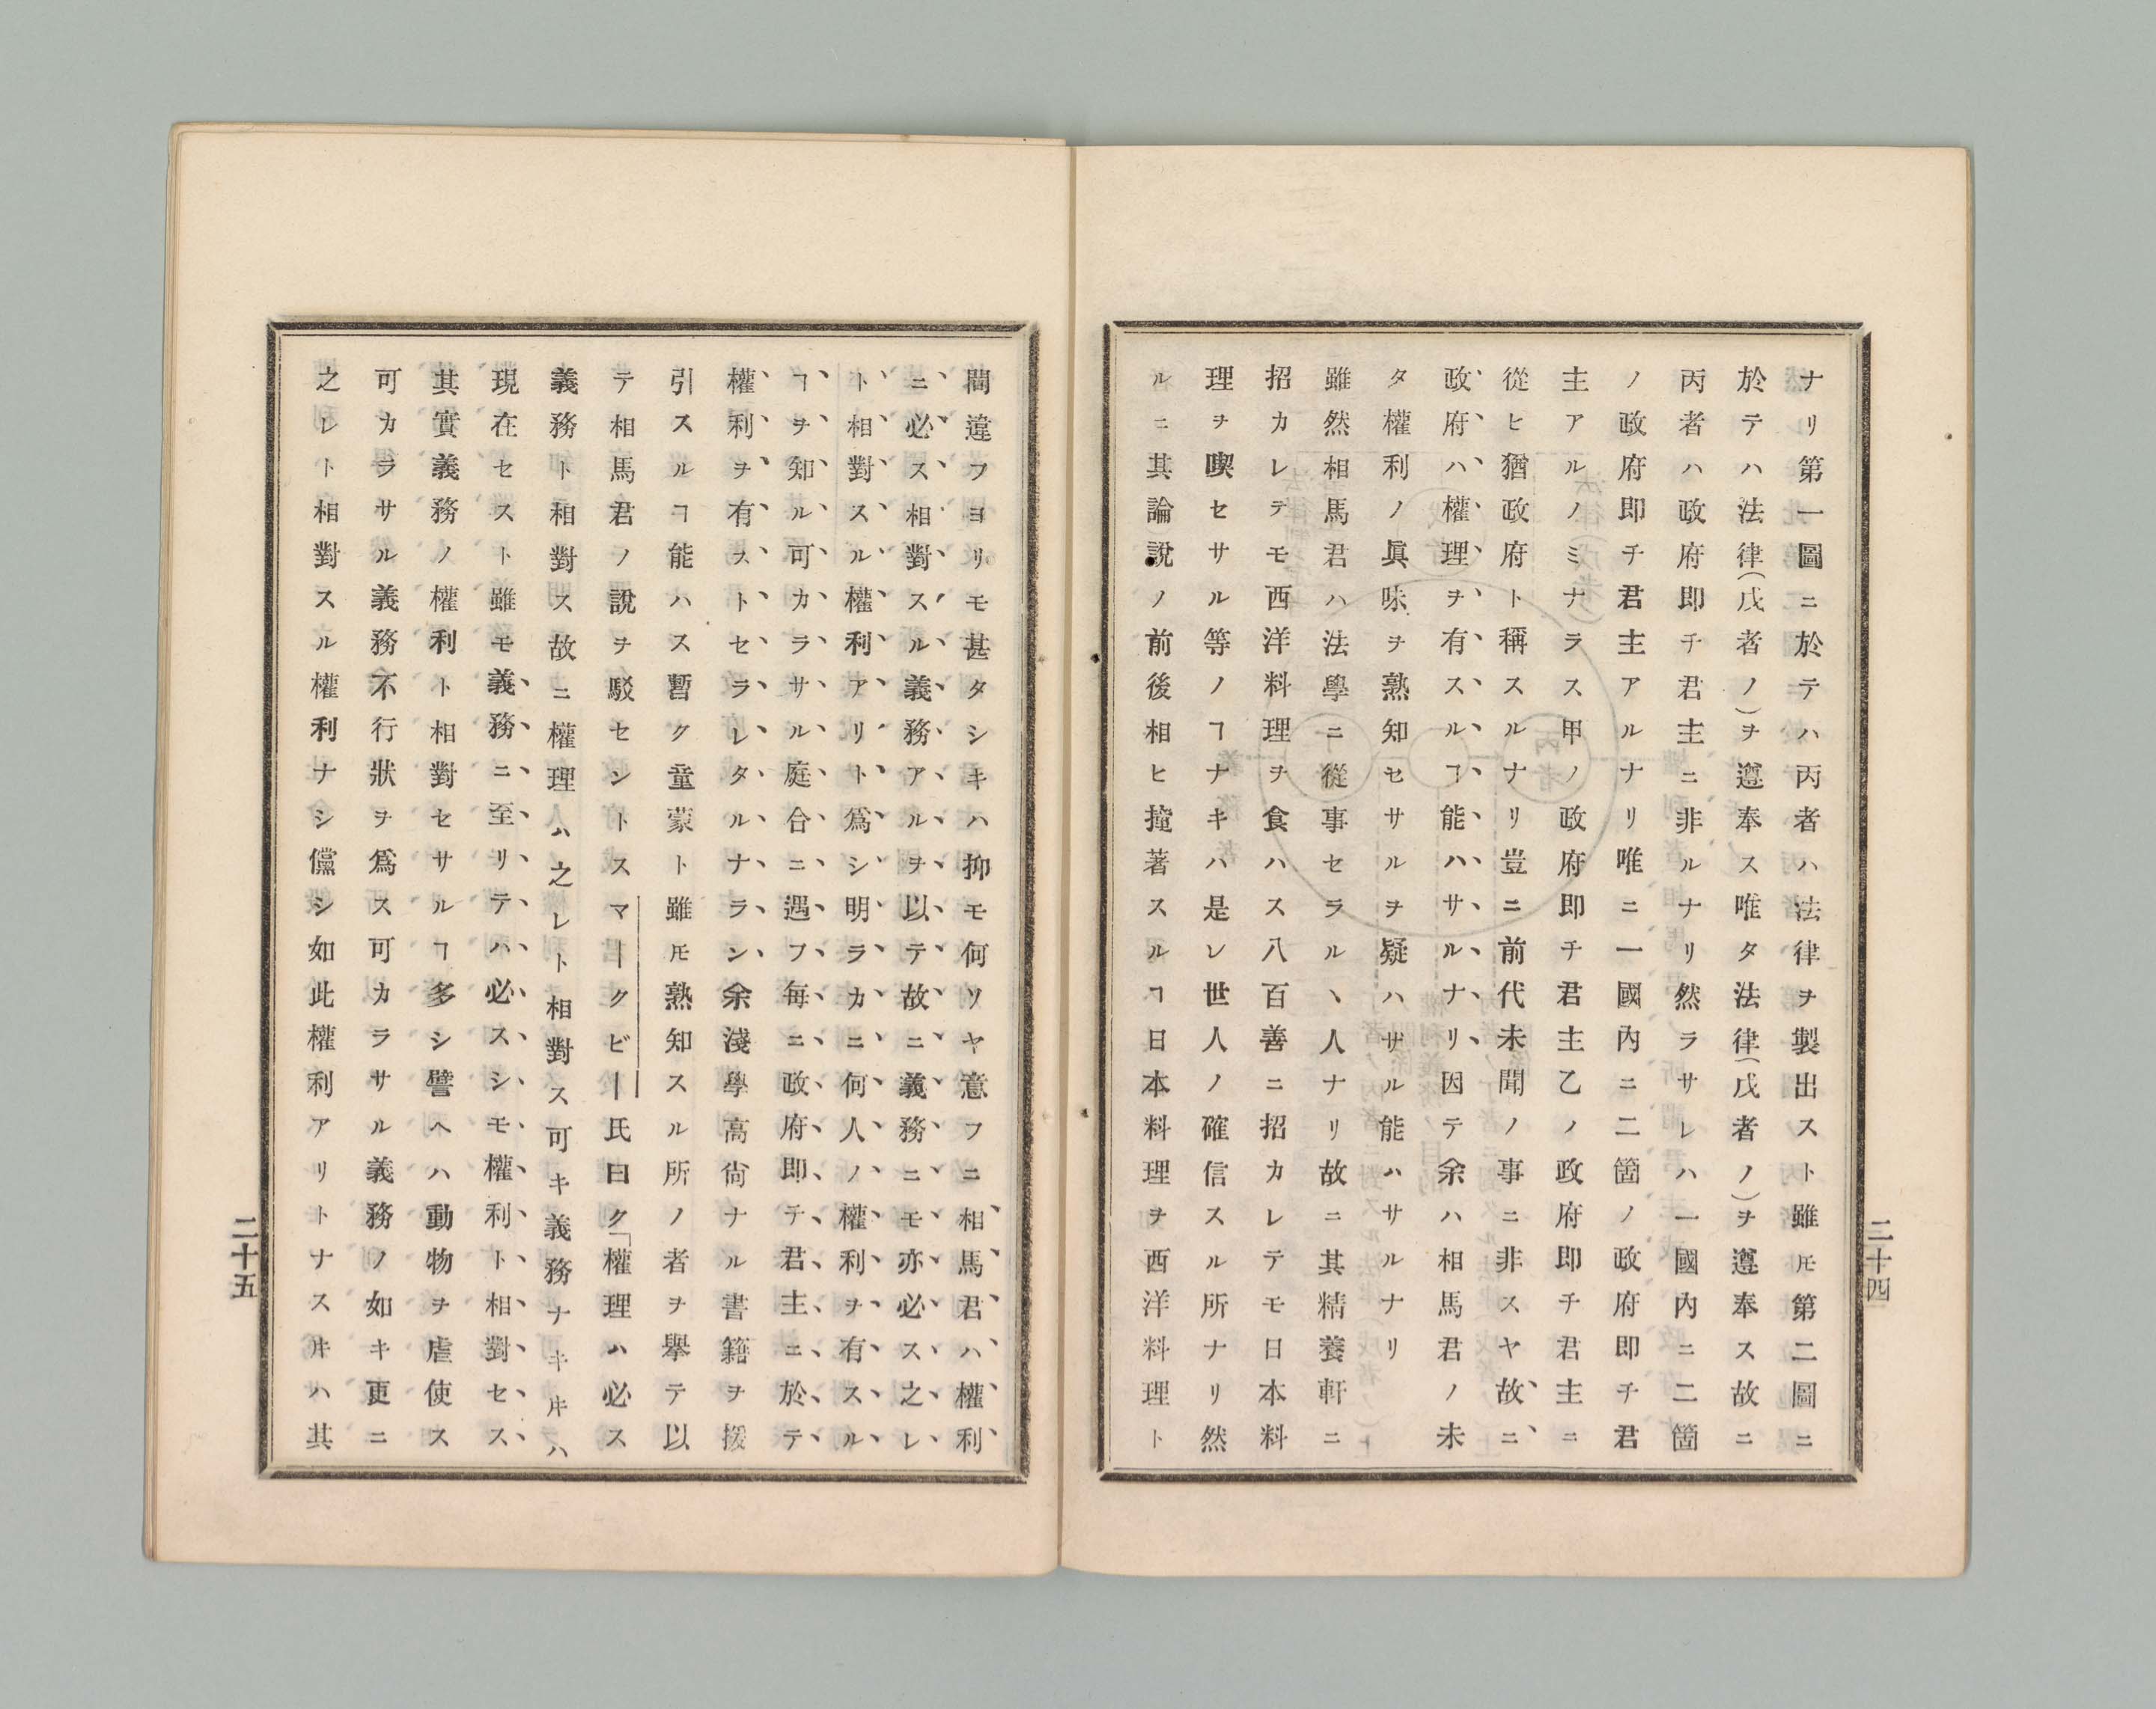 ナリ第一圖ニ於テハ丙者ハ法律ヲ製出スト雖𪜈第二圖ニ
於テハ法律(戊者ノ)ヲ遵奉ス唯タ法律(戊者ノ)ヲ遵奉ス故ニ
丙者ハ政府即チ君主ニ非ルナリ然ラサレハ一國内ニ二箇
ノ政府即チ君主アルナリ唯ニ一國内ニ二箇ノ政府即チ君
主アルノミナラス甲ノ政府即チ君主乙ノ政府即チ君主ニ
從ヒ猶政府ト稱スルナリ豈ニ前代未聞ノ事ニ非スヤ故ニ
政府ハ權理ヲ有スルヿ能ハサルナリ因テ余ハ相馬君ノ未
タ權利ノ眞味ヲ熟知セサルヲ疑ハザル能ハサルナリ
雖然相馬君ハ法學ニ從事セラルヽ人ナリ故ニ其精養軒ニ
招カレテモ西洋料理ヲ食ハス八百善ニ招カレテモ日本料
理ヲ喫セサル等ノヿナキハ是レ世人ノ確信スル所ナリ然
ルニ其論説ノ前後相ヒ撞著スルヿ日本料理ヲ西洋料理ト
二十四
間違フヨリモ甚タシキハ抑モ何ソヤ意フニ相馬君ハ權利
ニ必ス相對スル義務アルヲ以テ故ニ義務ニモ亦必ス之レ
ト相對スル權利アリト爲シ明ラカニ何人ノ權利ヲ有スル
ヿヲ知ル可カラサル庭合ニ遇フ毎ニ政府即テ君主ニ於テ
權利ヲ有ストセラレタルナラン余淺學高尙ナル書籍ヲ援
引スルヿ能ハス暫ク童蒙ト雖𪜈熟知スル所ノ者ヲ擧テ以
テ相馬君ノ說ヲ駁セントスマークビー氏曰ク「權理ハ必ス
義務ト相對ス故ニ權理ハ之レト相對ス可キ義務ナキ𪜀ハ
現在セスト雖モ義務ニ至リテハ必スシモ權利ト相對セス
其實義務ノ權利ト相對セサルヿ多シ譬ヘハ動物ヲ虐使ス
可カラサル義務不行狀ヲ爲ス可カラサル義務ノ如キ更ニ
之レト相對スル權利ナシ儻シ如此權利アリトナス𪜀ハ其
二十五